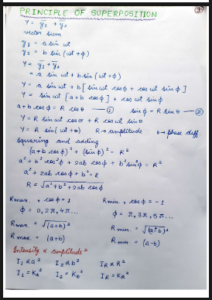 PRINCIPLE OF SUPERPOSITION
y = y₁ + y₂
vector sum
y₁ = a sin ωt
y₂ = b sin (ωt + φ)
y = y₁ + y₂
= a sin ωt + b sin (ωt + φ)
y = a sin ωt + b [sin ωt cos φ + cos ωt sin φ]
y = sin ωt [a + b cos φ] + cos ωt sin φ
a + b cos φ = R cos θ —① sin φ = R sin θ —②
y = R sin ωt cos θ + R cos ωt sin θ
y = R sin (ωt + θ) R → amplitude φ → phase diff
Squaring and adding
(a + b cos φ)² + (sin φ)² = R²
a² + b² cos² φ + 2ab cos φ + b² sin² φ = R²
R = √a² + b² + 2ab cos φ
R max, cos φ = 1 R min, cos φ = -1
φ = 0, 2π, 4π... φ = π, 3π, 5π...
R max = √(a+b)²
R max = (a+b) R min = (a-b)
Intensity ∝ amplitude²
I₁ ∝ a² I₂ ∝ b² I_R ∝ R²
I₁ = Ka² I₂ = Kb² I_R = KR²